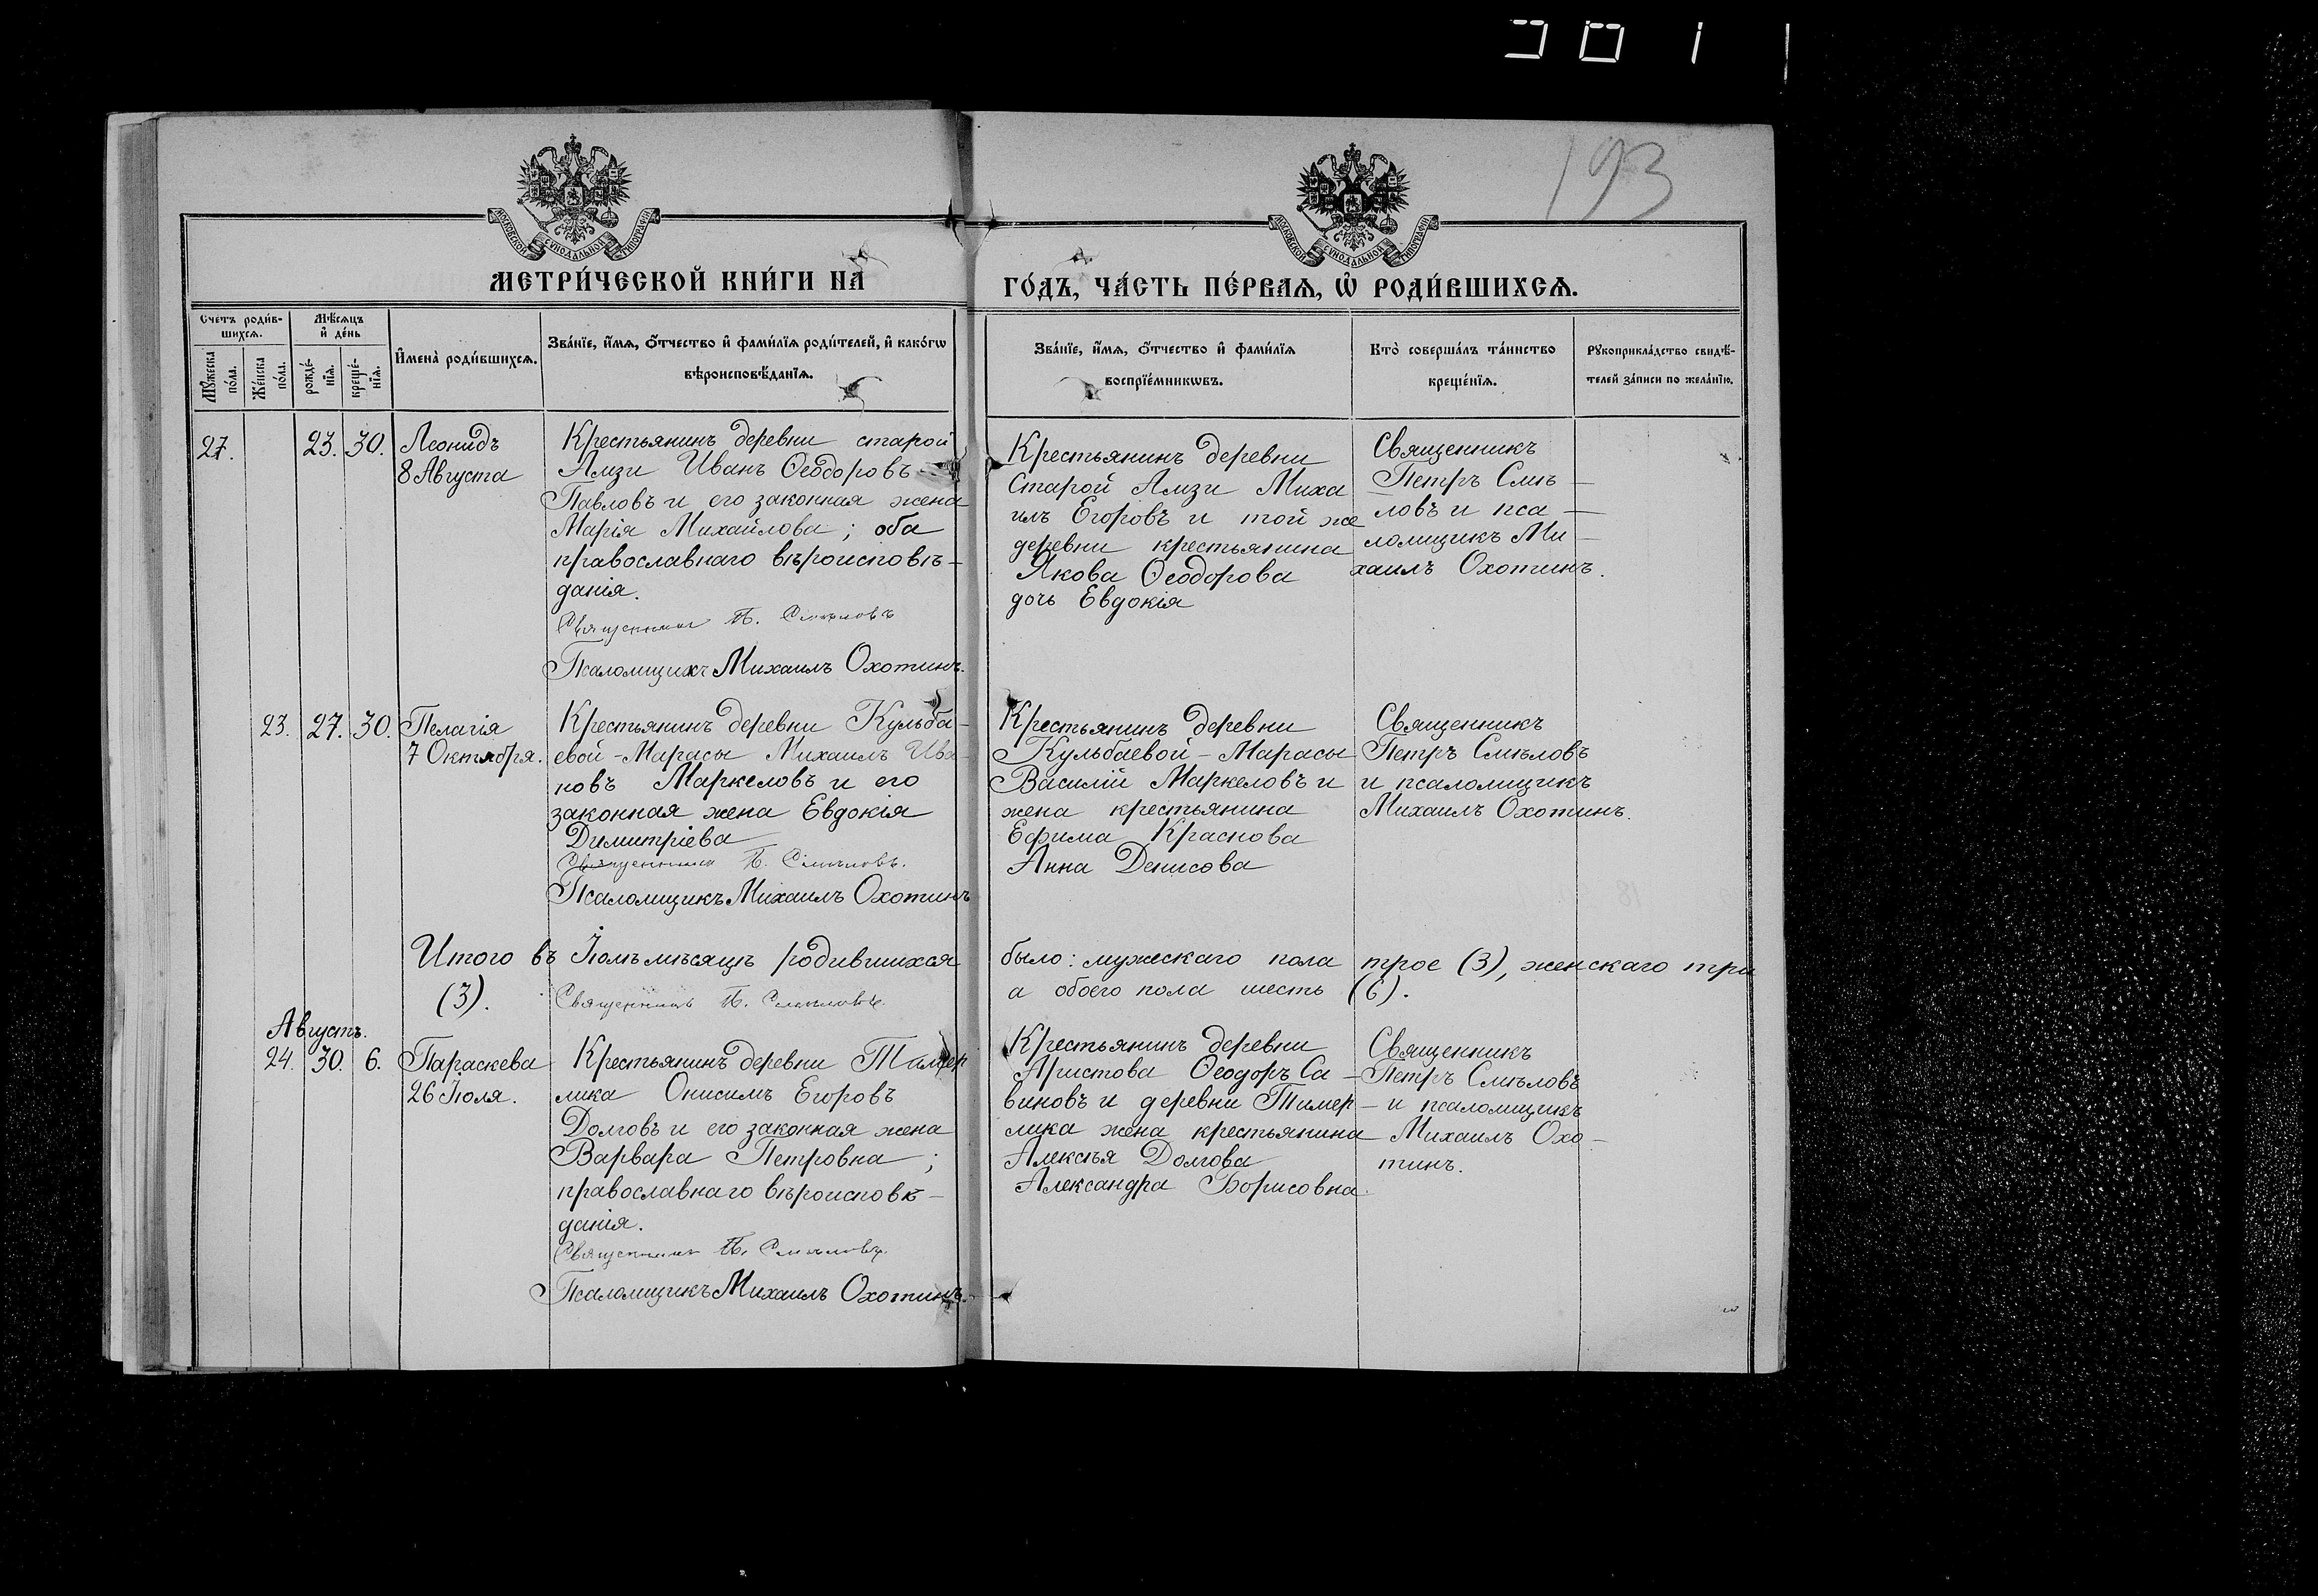 193
МОСКОВСКОЙ СѴНОДАЛЬНОЙ ТИПОГРАФІИ
МОСКОВСКОЙ СѴНОДАЛЬНОЙ ТИПОГРАФІИ
МЕТРИ́ЧЕСКОЙ КНИ́ГИ НА
ГО́ДЪ, ЧА́СТЬ ПЕ́РВАѦ, Ѡ҆ РОДИ́ВШИХСѦ.
Счетъ роди́в-
шихсѧ.
Мꙋ́жеска
по́ла.
Же́нска
по́ла.
Мѣ́сѧцъ
и҆ де́нь
рожде́-
нїѧ.
креще́-
нїѧ.
И҆мена̀ роди́вшихсѧ.
Зва́нїе, и҆́мѧ, ѻ҆́тчество и҆ фами́лїѧ роди́телей, и҆ како́гѡ
вѣроисповѣ́данїѧ.
Зва́нїе, и҆́мѧ, ѻ҆́тчество и҆ фами́лїѧ
воспрїе́мникѡвъ.
Кто̀ соверша́лъ та́инство
креще́нїѧ.
Рꙋкоприкла́дство свидѣ́-
телей за́писи по жела́нїю.
27.
23.
30.
Леонидъ
8 Августа
Крестьянинъ деревни старой
Амзи Иванъ Ѳеодоровъ
Павловъ и его законная жена
Марія Михайлова; оба
православнаго вѣроисповѣ-
данія.
Священникъ П. Смѣловъ
Псаломщикъ Михаилъ Охотинъ.
Крестьянинъ деревни
Старой Амзи Миха
илъ Егоровъ и той же
деревни крестьянина
Якова Ѳеодорова
дочь Евдокія
Священникъ
Петръ Смѣ-
ловъ и пса-
ломщикъ Ми-
хаилъ Охотинъ.
23.
27.
30.
Пелагія
7 Октября.
Крестьянинъ деревни Кульба-
евой-Марасы Михаилъ Ива-
новъ Маркеловъ и его
законная жена Евдокія
Димитріева
Священникъ П. Смѣловъ.
Псаломщикъ Михаилъ Охотинъ
Крестьянинъ деревни
Кульбаевой-Марасы
Василій Маркеловъ и
жена крестьянина
Ефима Краснова
Анна Денисова
Священникъ
Петръ Смѣловъ
и псаломщикъ
Михаилъ Охотинъ.
Итого въ Іюлѣ мѣсяцѣ родившихся было: мужескаго пола трое (3), женскаго три
(3). а обоего пола шесть (6).
Священникъ П. Смѣловъ.
Августъ.
24.
30.
6.
Параскева
26 Іюля.
Крестьянинъ деревни Тимер
лика Онисимъ Егоровъ
Долговъ и его законная жена
Варвара Петровна;
православнаго вѣроисповѣ-
данія.
Священникъ П. Смѣловъ.
Псаломщикъ Михаилъ Охотинъ.
Крестьянинъ деревни
Аристова Ѳеодоръ Са-
виновъ и деревни Тимер-
лика жена крестьянина
Алексѣя Долгова
Александра Борисовна.
Священникъ
Петръ Смѣловъ
и псаломщикъ
Михаилъ Охо-
тинъ.